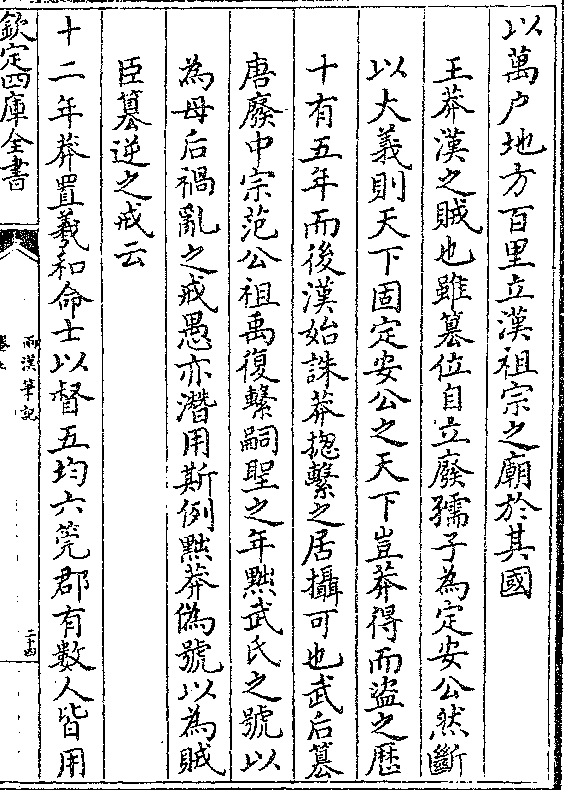 以萬户地方百里立漢祖宗之廟於其國
王莽漢之賊也雖篡位自立廢孺子為定安公然斷
以大義則天下固定安公之天下豈莽得而盜之歴
十有五年而後漢始誅莽揔繫之居攝可也武后篡
唐廢中宗范公祖禹復繫嗣聖之年黜武氏之號以
為母后禍亂之戒愚亦潛用斯例黜莽偽號以為賊
臣篡逆之戒云
十二年莽置羲和命士以督五均六筦郡有數人皆用
欽定四庫全書
兩漢筆記
二十四